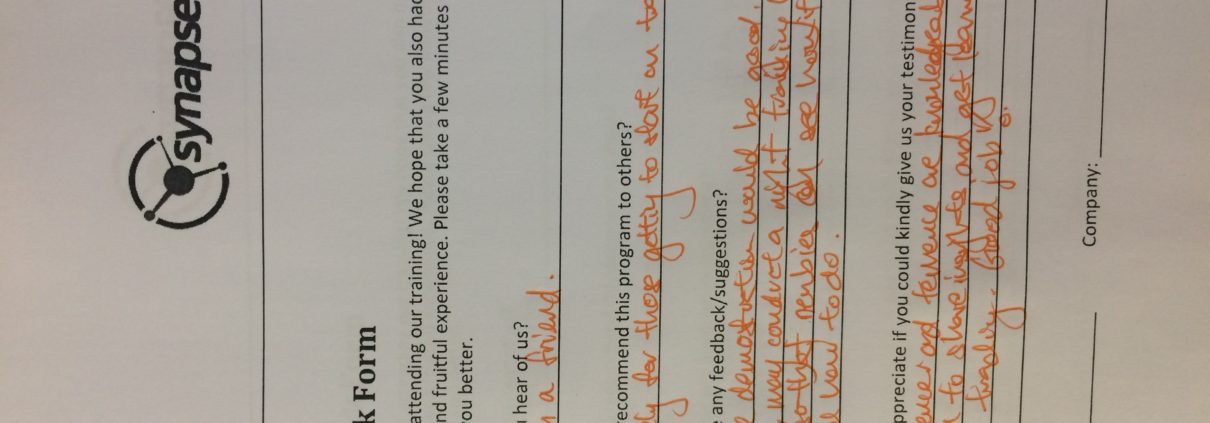 synapse
k Form
attending our training! We hope that you also had
nd fruitful experience. Please take a few minutes
ou better.
u hear of us?
a friend.
recommend this program to others?
ly for those getting to start on to
e any feedback/suggestions?
demonstration would be good.
may conduct a night trading
so that newbies can see how it
how to do.
ppreciate if you could kindly give us your testimon
and Terrence are knowledgeab
to share insights and get learn
trading. Good job
Company: